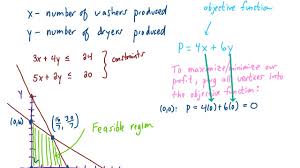 x - number of washers produced
y - number of dryers produced
3x + 4y ≤ 24
5x + 2y ≤ 20
constraints
objective function
P = 4x + 6y
To maximize/minimize our
profit, plug all vertices into
the objective function:
(0,0): P = 4(0) + 6(0) = 0
y
(0,6)
Feasible region